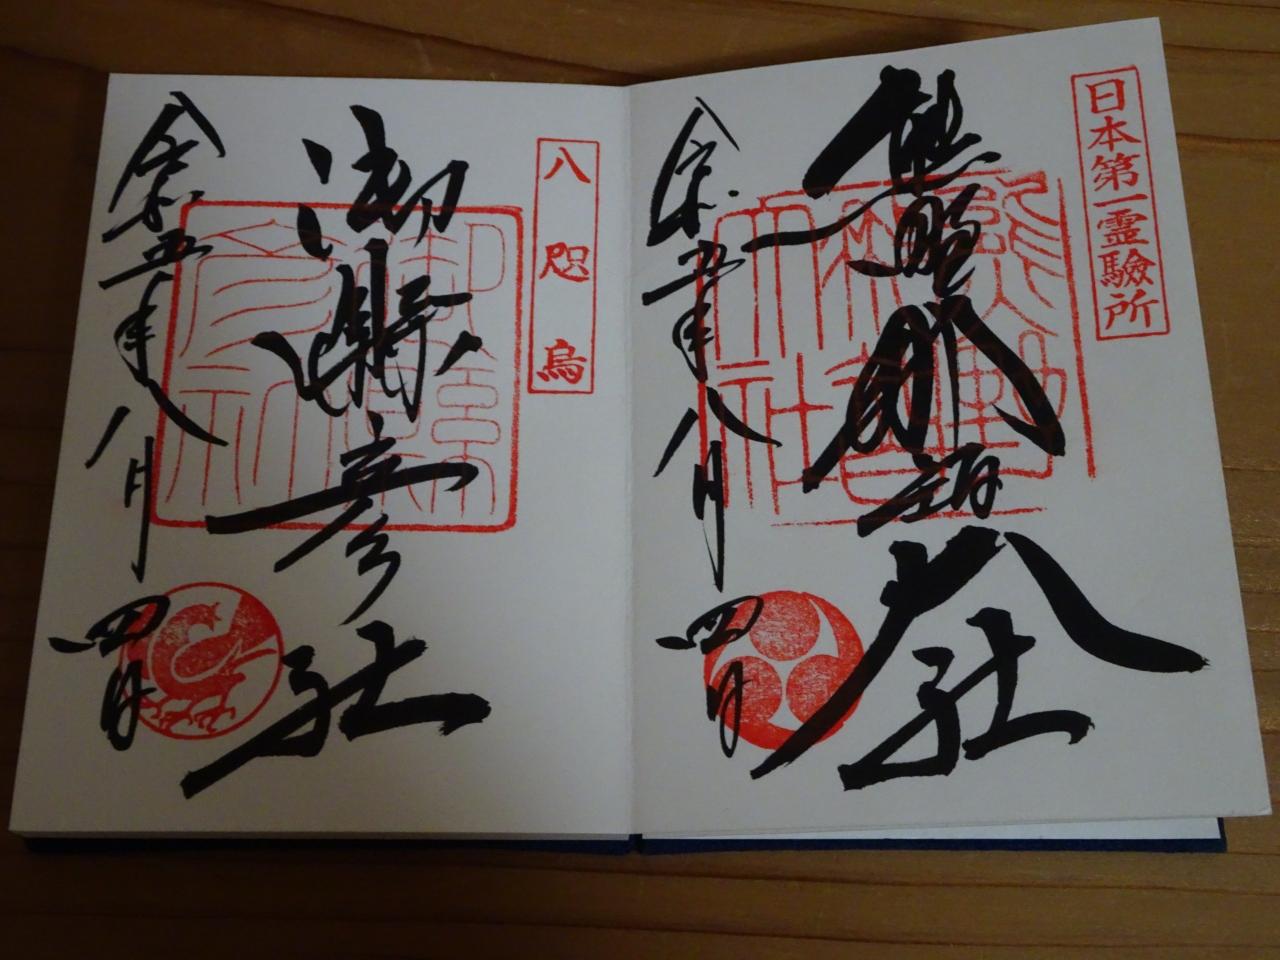 日本第一霊驗所
熊野那智大社
令和五年八月四日
八咫烏
御縣彦社
令和五年八月四日